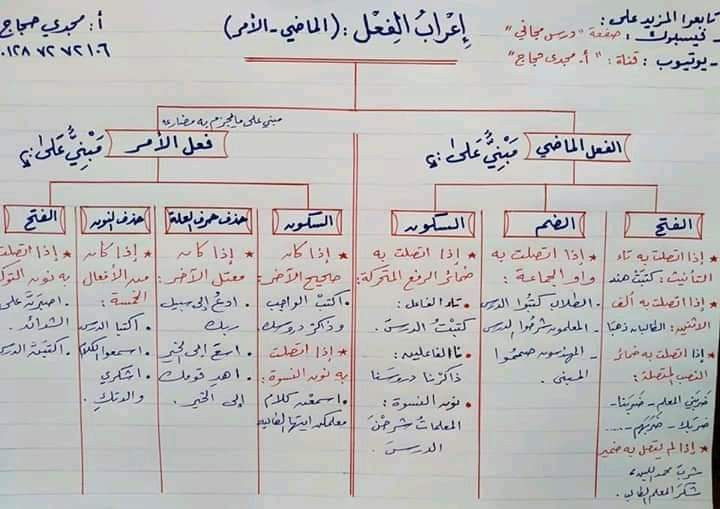 تابعوا المزيد على:
- فيسبوك: صفحة "درس مجاني"
- يوتيوب: قناة: "أ. مجدي حجاج"
إعْرابُ الفِعْل: (الماضي-الأمر)
أ: مجدي حجاج
٠١٢٨ ٧٢ ٧٢١٠٦
الفعل الماضي مَبْنِيٌّ عَلى:
الفتح
★ إذا اتصلت به تاء
التأنيث: كتبَتْ هند
★ إذا اتصلت به ألف
الاثنين: الطالبان ذهبَا
★ إذا اتصلت به ضمائر
النصب المتصلة:
ضَرَبَني المعلم - ضَرَبَنا-
ضَرَبَك - ضَرَبَهم - ....
★ إذا لم يتصل به ضمير
شربَ محمد اللبن.
شكرَ المعلم الطالب.
الضم
★ إذا اتصلت به
واو الجماعة:
- الطلاب كتبُوا الدرس
- المعلمون شرحُوا الدرس
- المهندسون صممُوا
المبنى.
السكون
★ إذا اتصلت به
ضمائر الرفع المتحركة:
• تاء الفاعل:
كتبْتُ الدرسَ.
• نا الفاعلين:
ذاكرْنا دروسَنا
• نون النسوة:
المعلماتُ شرحْنَ
الدرسَ.
مبني على ما يجزم به مضارعه
فعل الأمر مَبْنِيٌّ عَلى:
السكون
★ إذا كان
صحيح الآخر:
• اكتبْ الواجب
وذاكرْ دروسك
★ إذا اتصلت
به نون النسوة:
• اسمعْن كلام
معلمكن أيتها الطالبات
حذف حرف العلة
★ إذا كان
معتل الآخر:
• ادعُ إلى سبيل
ربك
• اسعَ إلى الخير
• اهدِ قومك
إلى الخير.
حذف النون
★ إذا كان
من الأفعال
الخمسة:
• اكتبا الدرس
• اسمعوا الكلام
• اشكري
والدتكِ.
الفتح
★ إذا اتصلت
به نون التوك
• اصبرَنَّ على
الشدائد.
• اكتبَنَّ الدرس